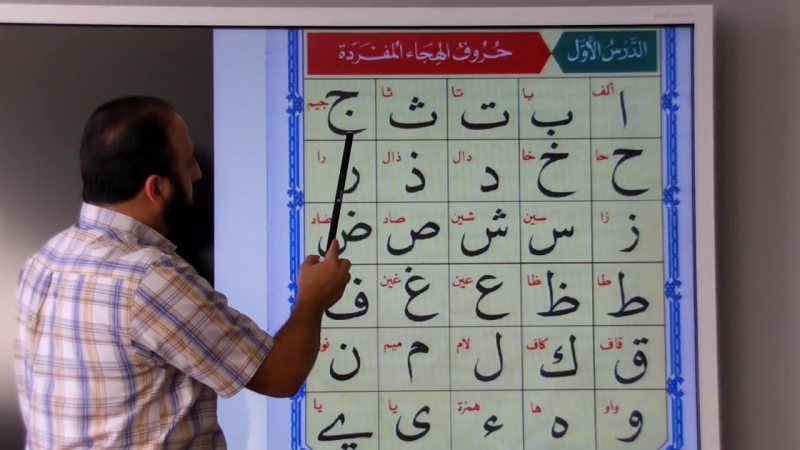 الدَّرْسُ الأَوَّل حُرُوفُ الهِجَاء المُفْرَدَة
ألف با تا ثا جيم
ا ب ت ث ج
حا خا دال ذال را
ح خ د ذ ر
زا سين شين صاد ضاد
ز س ش ص ض
طا ظا عين غين
ط ظ ع غ ف
قاف كاف لام ميم نون
ق ك ل م ن
واو ها همزة يا يا
و ه ء ى ے